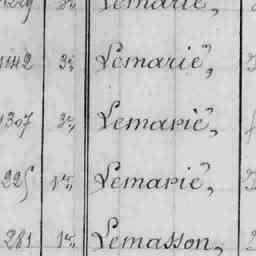 Lemarié,
1142 3e, Lemarié,
1307 3e, Lemarié,
225 1re, Lemarié,
281 1re, Lemasson,